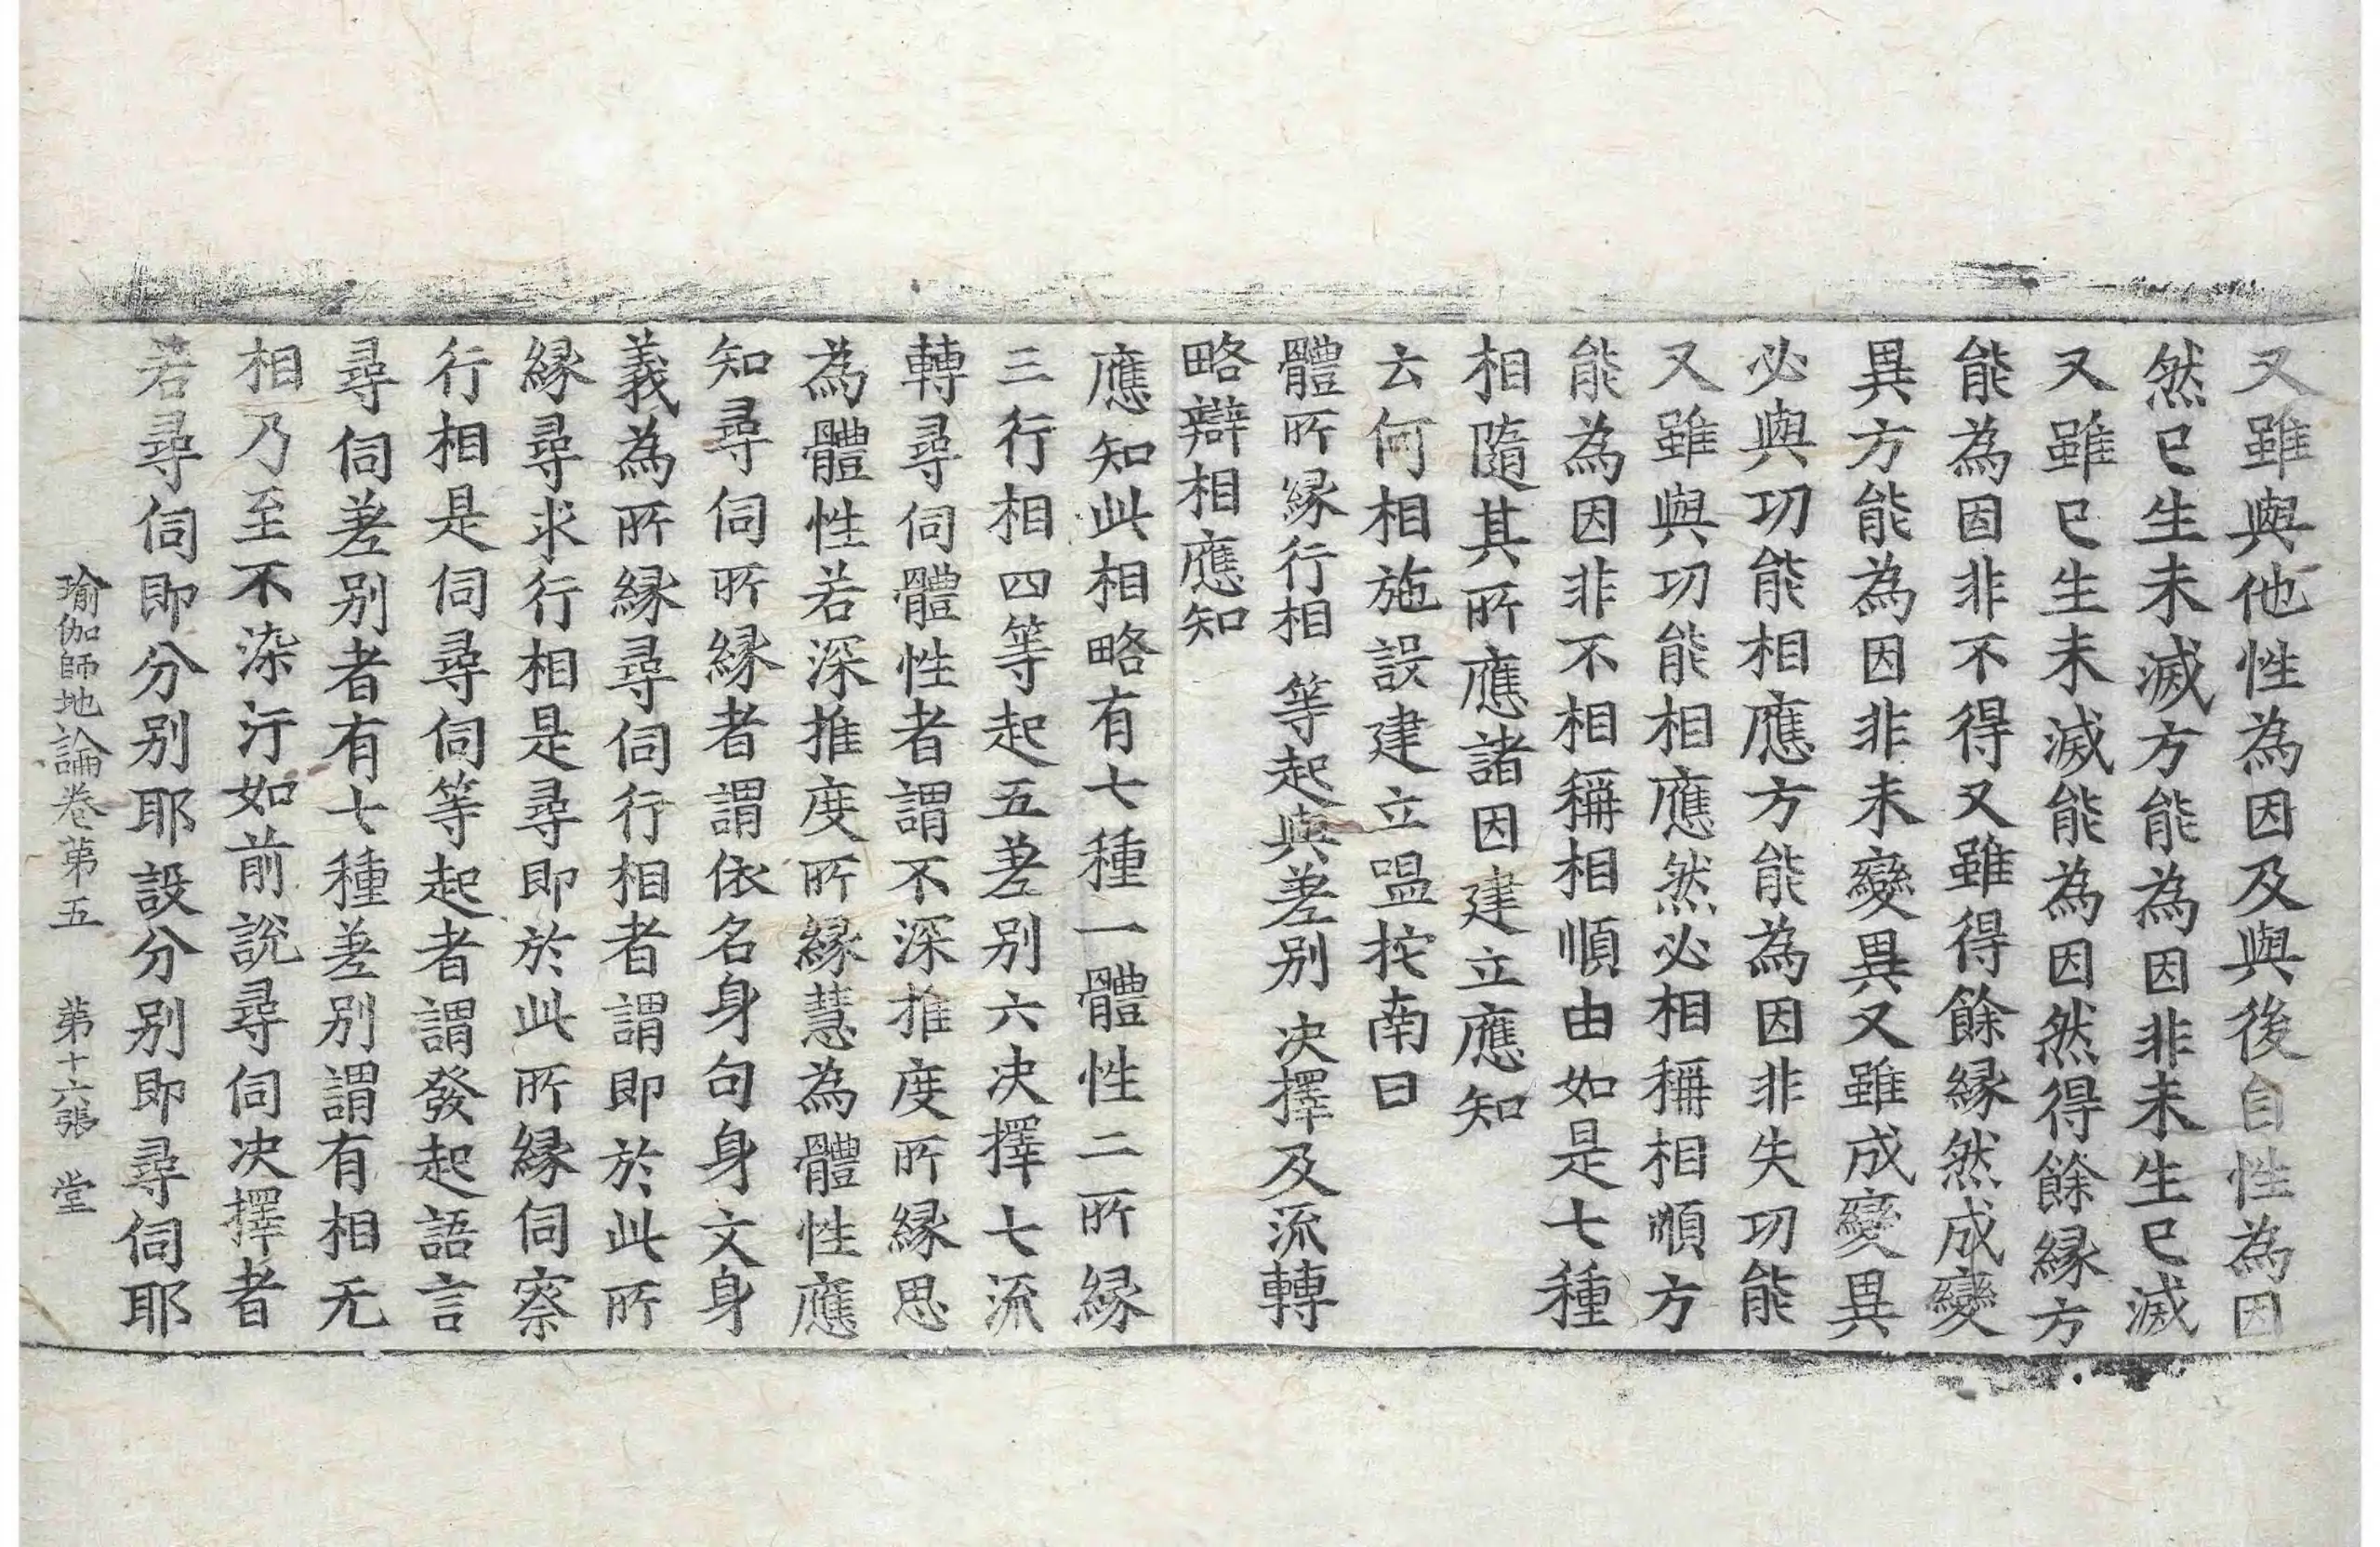 又雖與他性為因及與後自性為因
然已生未滅方能為因非未生已滅
又雖已生未滅能為因然得餘縁方
能為因非不得又雖得餘縁然成變
異方能為因非未變異又雖成變異
必與功能相應方能為因非失功能
又雖與功能相應然必相稱相順方
能為因非不相稱相順由如是七種
相隨其所應諸因建立應知
云何相施設建立嗢拕南曰
體所縁行相 等起與差别 决擇及流轉
略辯相應知
應知此相略有七種一體性二所縁
三行相四等起五差别六决擇七流
轉尋伺體性者謂不深推度所縁思
為體性若深推度所縁慧為體性應
知尋伺所縁者謂依名身句身文身
義為所縁尋伺行相者謂即於此所
縁尋求行相是尋即於此所縁伺察
行相是伺尋伺等起者謂發起語言
尋伺差别者有七種差别謂有相无
相乃至不染汙如前説尋伺决擇者
若尋伺即分别耶設分别即尋伺耶
瑜伽師地論卷第五 第十六張 堂